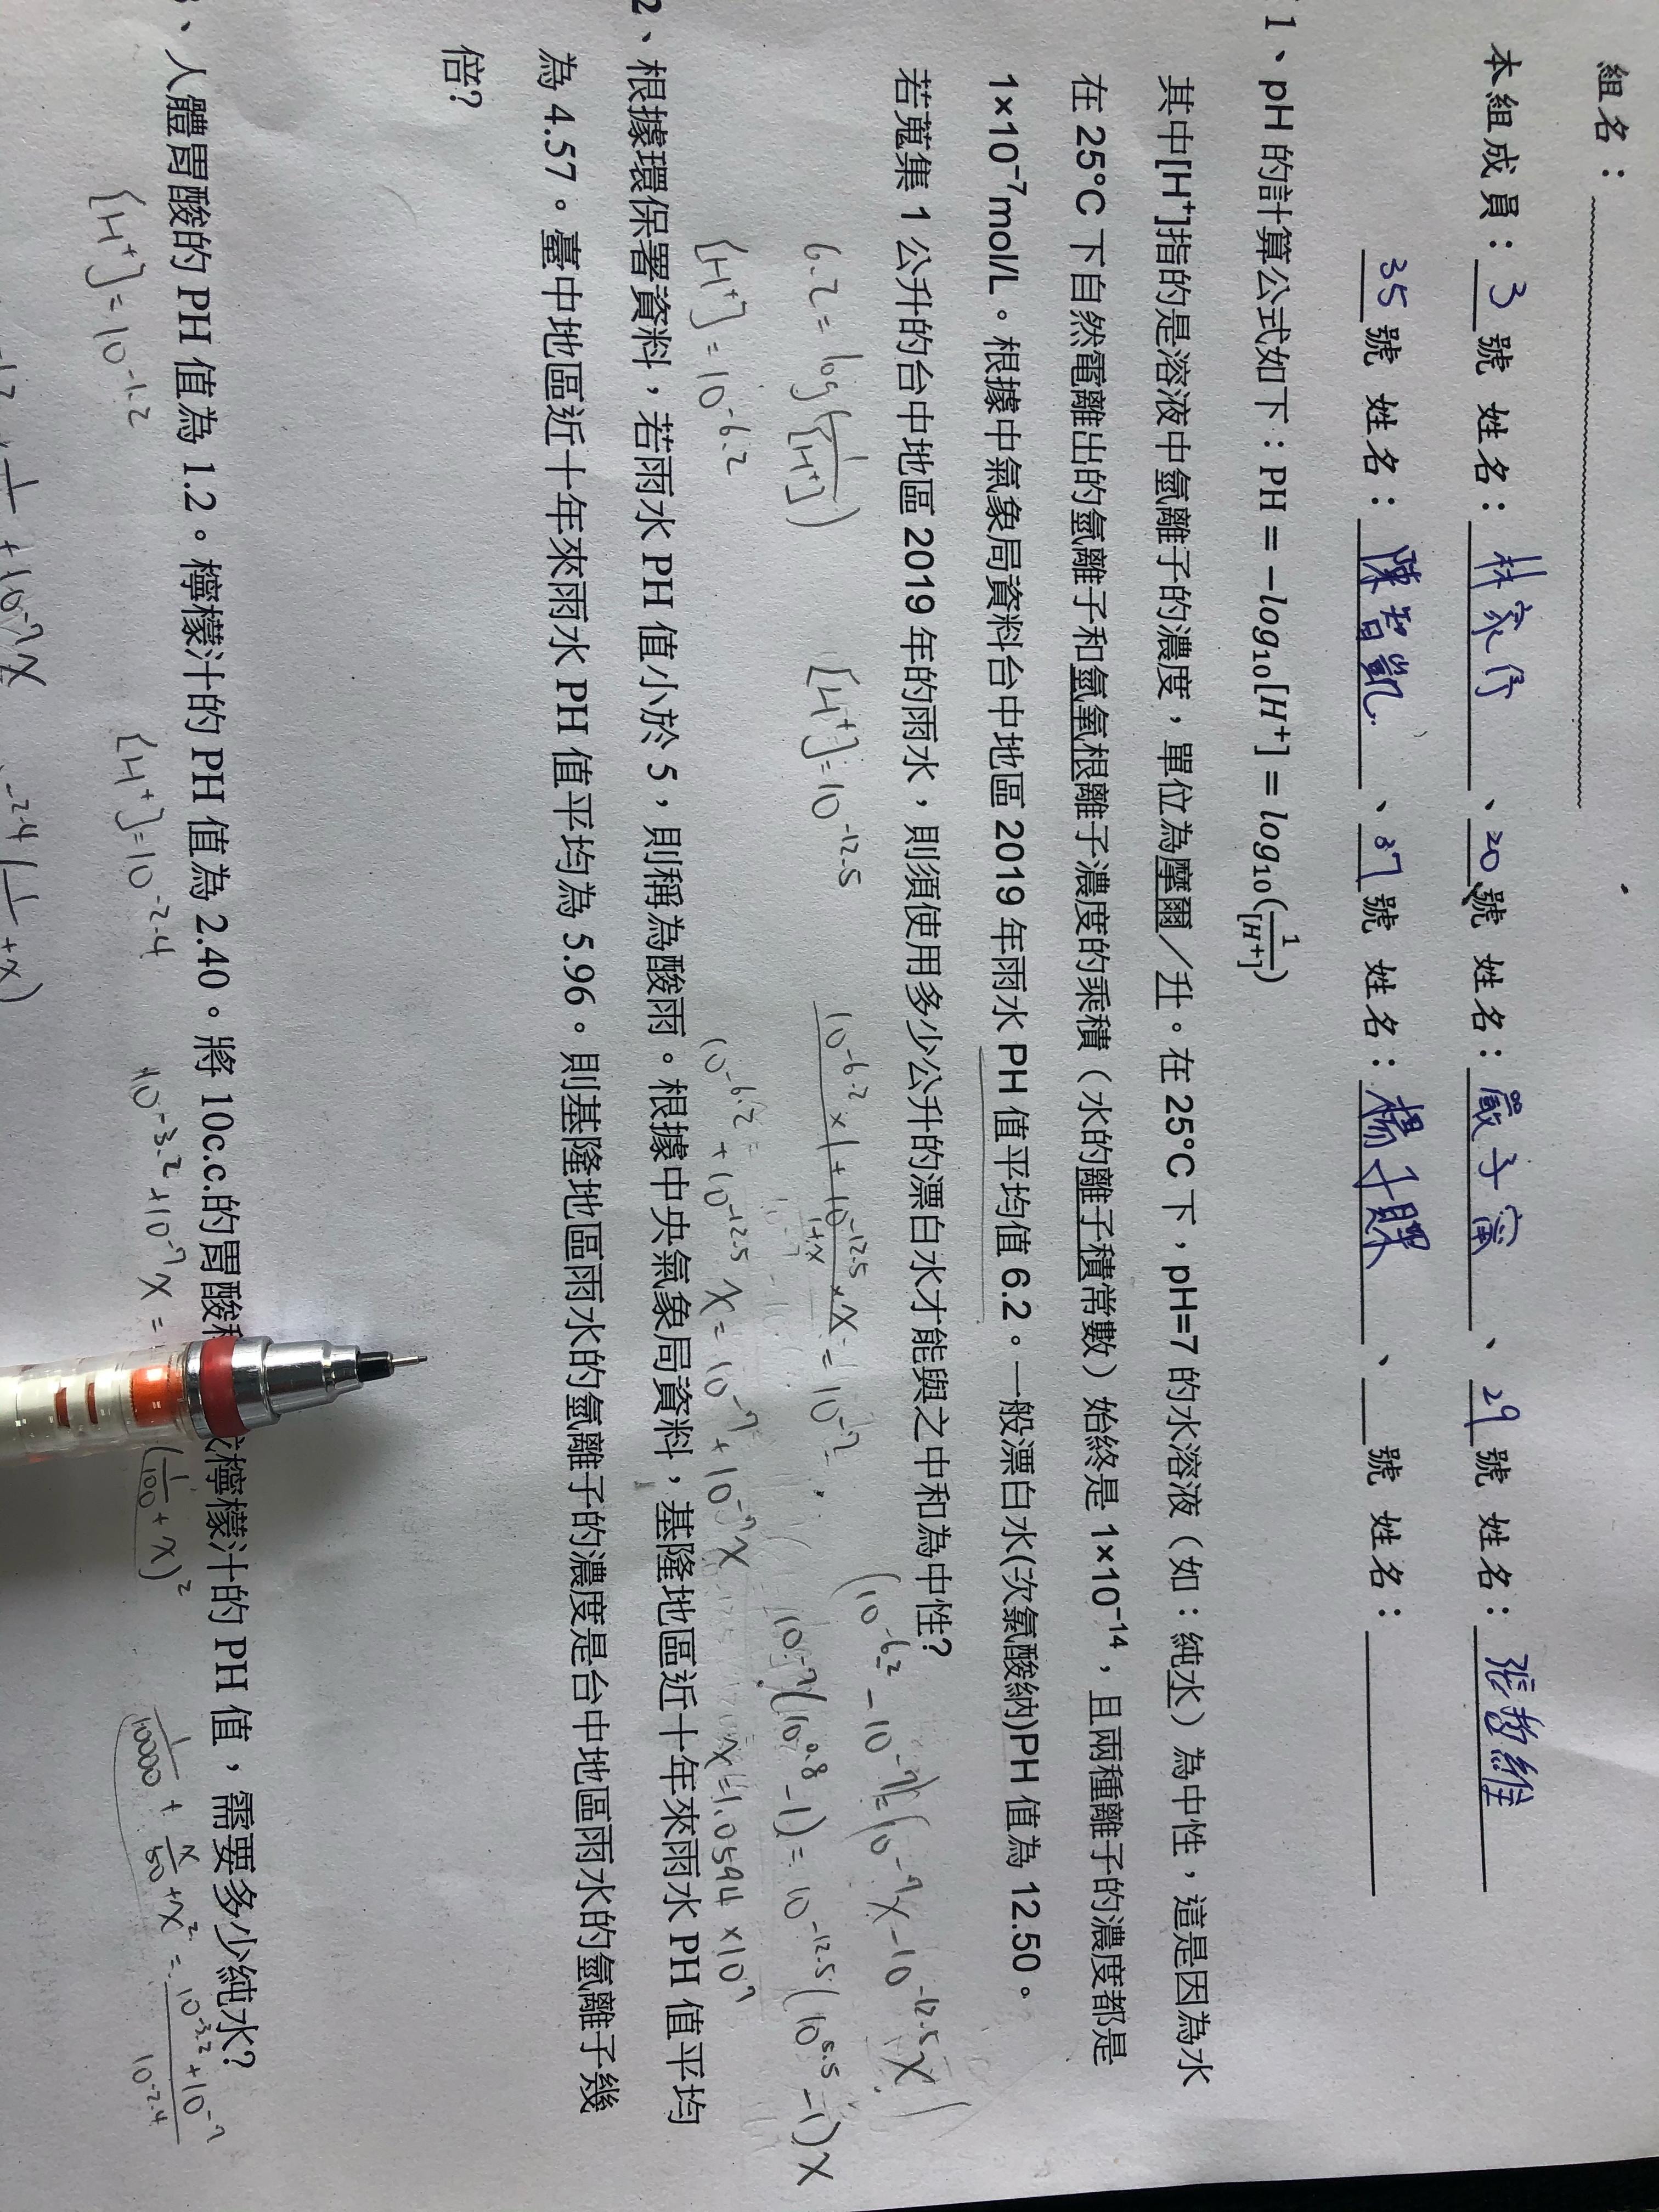 組名：
本組成員：3號 姓名：林家伃、20號 姓名：嚴子甯、29號 姓名：張智維
35號 姓名：陳智凱、37號 姓名：楊千嬅、 號 姓名：
1、pH 的計算公式如下：PH = −log₁₀[H⁺] = log₁₀(1/[H⁺])
其中[H⁺]指的是溶液中氫離子的濃度，單位為摩爾／升。在 25°C 下，pH=7 的水溶液（如：純水）為中性，這是因為水
在 25°C 下自然電離出的氫離子和氫氧根離子濃度的乘積（水的離子積常數）始終是 1×10⁻¹⁴，且兩種離子的濃度都是
1×10⁻⁷mol/L。根據中氣象局資料台中地區 2019 年雨水 PH 值平均值 6.2。一般漂白水(次氯酸納)PH 值為 12.50。
若蒐集 1 公升的台中地區 2019 年的雨水，則須使用多少公升的漂白水才能與之中和為中性?
(10⁻⁶·² − 10⁻⁷) = (10⁻⁷x − 10⁻¹²·⁵x)
6.2 = log(1/[H⁺]) [H⁺] = 10⁻¹²·⁵ (10⁻⁶·² × 1 + 10⁻¹²·⁵ × x)/(1+x) = 10⁻⁷
10⁻⁷(10⁰·⁸ − 1) = 10⁻¹²·⁵(10⁵·⁵ − 1)x
[H⁺] = 10⁻⁶·² 10⁻⁶·² + 10⁻¹²·⁵ x = 10⁻⁷ + 10⁻⁷x
2、根據環保署資料，若雨水 PH 值小於 5，則稱為酸雨。根據中央氣象局資料，基隆地區近十年來雨水 PH 值平均
為 4.57。臺中地區近十年來雨水 PH 值平均為 5.96。則基隆地區雨水的氫離子的濃度是台中地區雨水的氫離子幾
倍?
、人體胃酸的 PH 值為 1.2。檸檬汁的 PH 值為 2.40。將 10c.c.的胃酸 檸檬汁的 PH 值，需要多少純水?
[H⁺] = 10⁻¹·² [H⁺] = 10⁻²·⁴ 10⁻³·² + 10⁻⁷x = (1/100 + x)² 1/10000 + x/50 + x² = (10⁻³·² + 10⁻⁷)/10⁻²·⁴